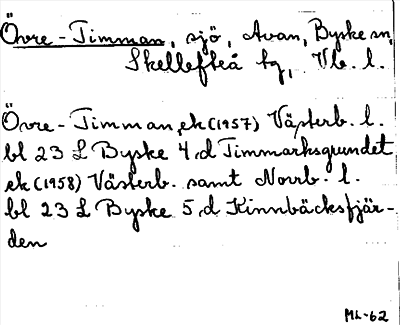 Övre-Timman, sjö, Avan, Byske sn,
Skellefteå tg, Vb. l.
Övre-Timman, ek (1957) Västerb. l.
bl 23 L Byske 4, d Timmarksgrundet
ek (1958) Västerb. samt Norrb. l.
bl 23 L Byske 5, d Kinnbäcksfjär-
den
ML-62